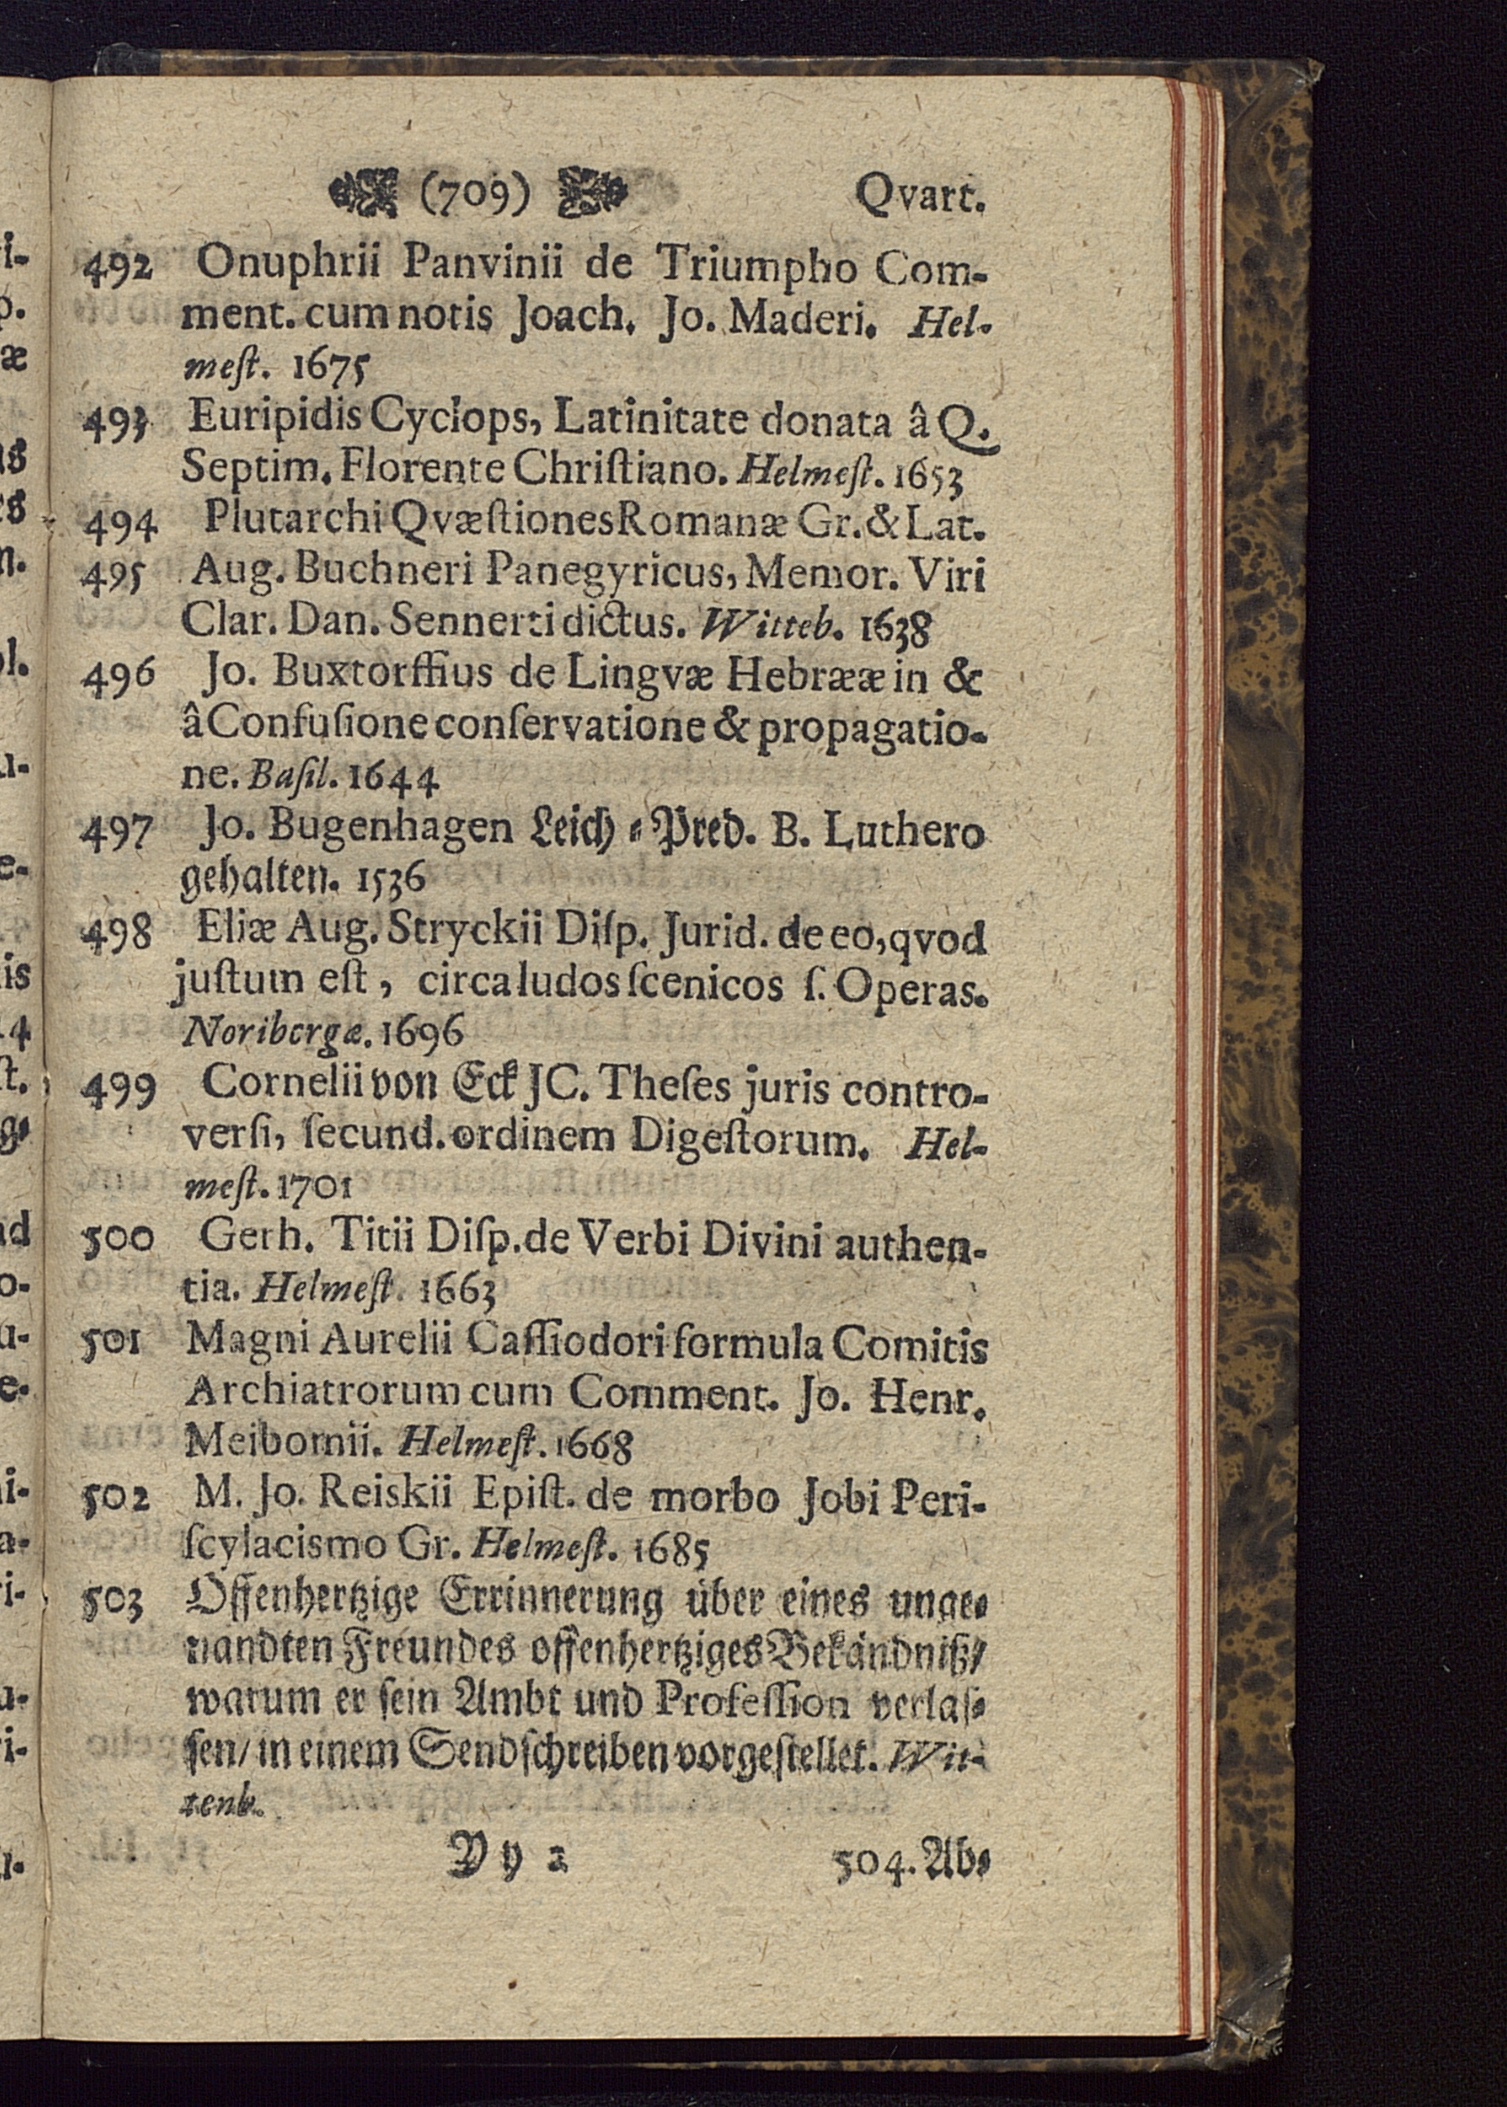 (709) Qvart.
492 Onuphrii Panvinii de Triumpho Com-
ment. cum notis Joach. Jo. Maderi. Hel-
meſt. 1675
493 Euripidis Cyclops, Latinitate donata â Q.
Septim. Florente Chriſtiano. Helmeſt. 1653
494 Plutarchi Qvæſtiones Romanæ Gr. & Lat.
495 Aug. Buchneri Panegyricus, Memor. Viri
Clar. Dan. Sennerti dictus. Witteb. 1638
496 Jo. Buxtorffius de Lingvæ Hebrææ in &
â Confuſione conſervatione & propagatio-
ne. Baſil. 1644
497 Jo. Bugenhagen Leich-Pred. B. Luthero
gehalten. 1536
498 Eliæ Aug. Stryckii Diſp. Jurid. de eo, qvod
juſtum eſt, circa ludos ſcenicos ſ. Operas.
Noribergæ. 1696
499 Cornelii von Eck JC. Theſes juris contro-
verſi, ſecund. ordinem Digeſtorum. Hel-
meſt. 1701
500 Gerh. Titii Diſp. de Verbi Divini authen-
tia. Helmeſt. 1663
501 Magni Aurelii Caſſiodori formula Comitis
Archiatrorum cum Comment. Jo. Henr.
Meibomii. Helmeſt. 1668
502 M. Jo. Reiskii Epiſt. de morbo Jobi Peri-
ſcylacismo Gr. Helmeſt. 1685
503 Offenhertzige Errinnerung über eines unge-
nandten Freundes offenhertziges Bekändniß/
warum er ſein Ambt und Profeſſion verlaſ-
ſen/ in einem Sendſchreiben vorgeſtellet. Wit-
tenb.
Yy 2 504. Ab-